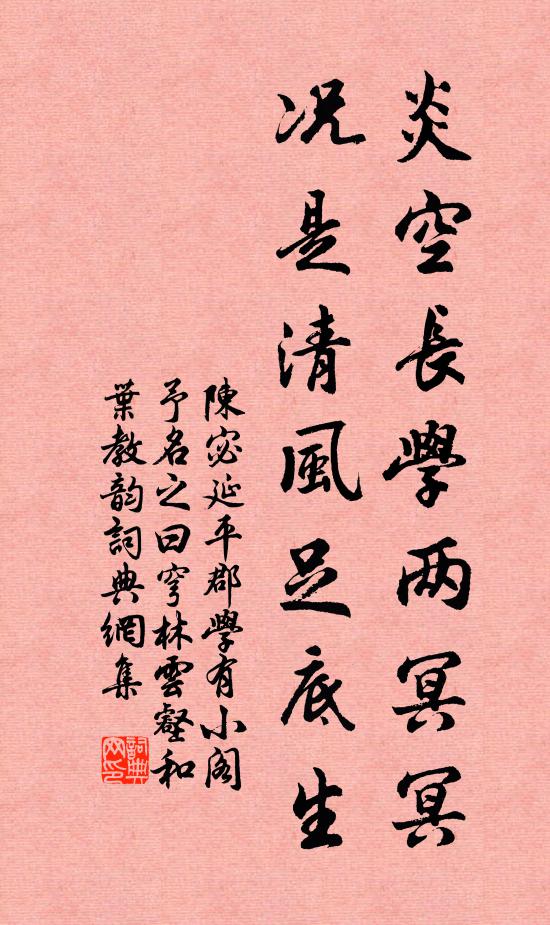 炎空長學两冥冥
况是清風足底生
陳宓延平郡學有小阁
予名之曰穹林雲壑和
葉教韵詞典網集
詞典网印